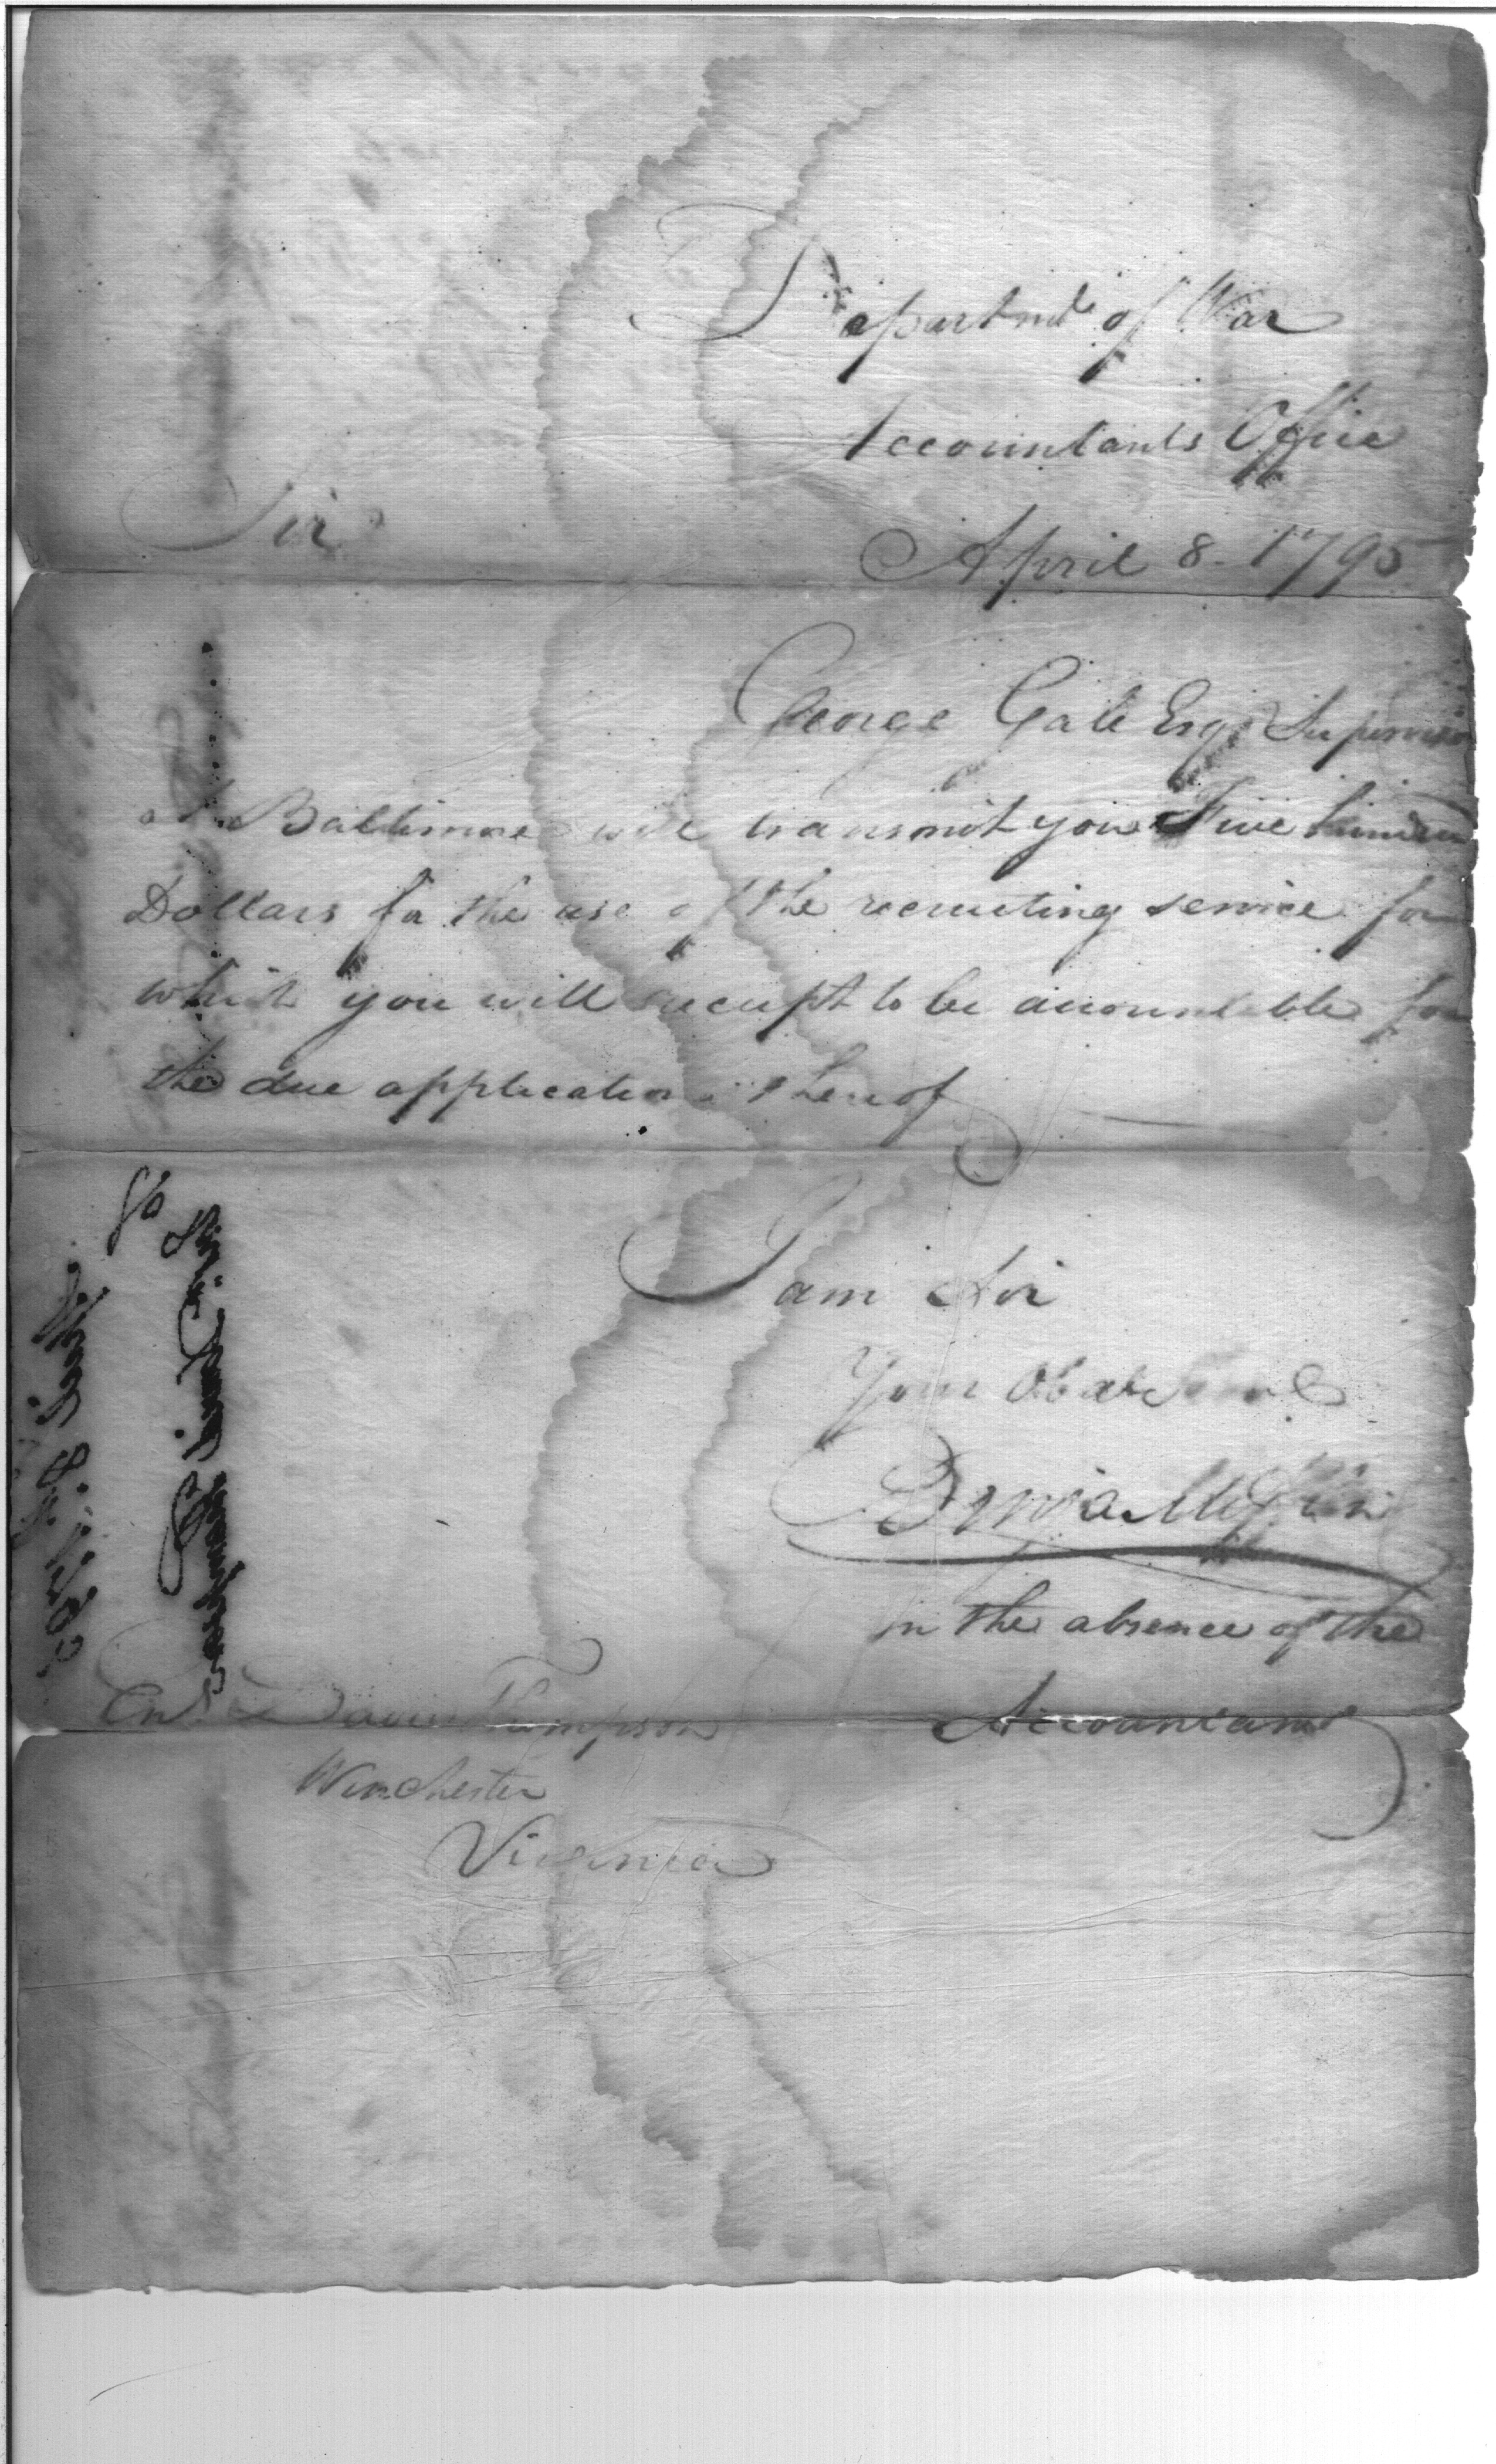 Departmt. of War
Accountants Office
Sir
April 8. 1795
George Gale Esqr. Supervisor
at Baltimore will transmit you Five hundred
Dollars for the use of the recruiting service for
which you will receipt to be accountable for
the due application thereof
I am Sir
Your Obdt Servt
Benja Mifflin
in the absence of the
Accountant
Ens. David Thompson
Winchester
Virginia